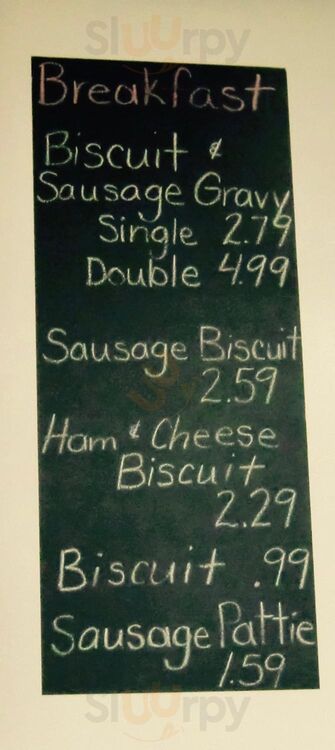 Slurpy
Breakfast
Biscuit &
Sausage Gravy
Single 2.79
Double 4.99
Sausage Biscuit
2.59
Ham & Cheese
Biscuit
2.29
Biscuit .99
Sausage Pattie
1.59
Slurpy